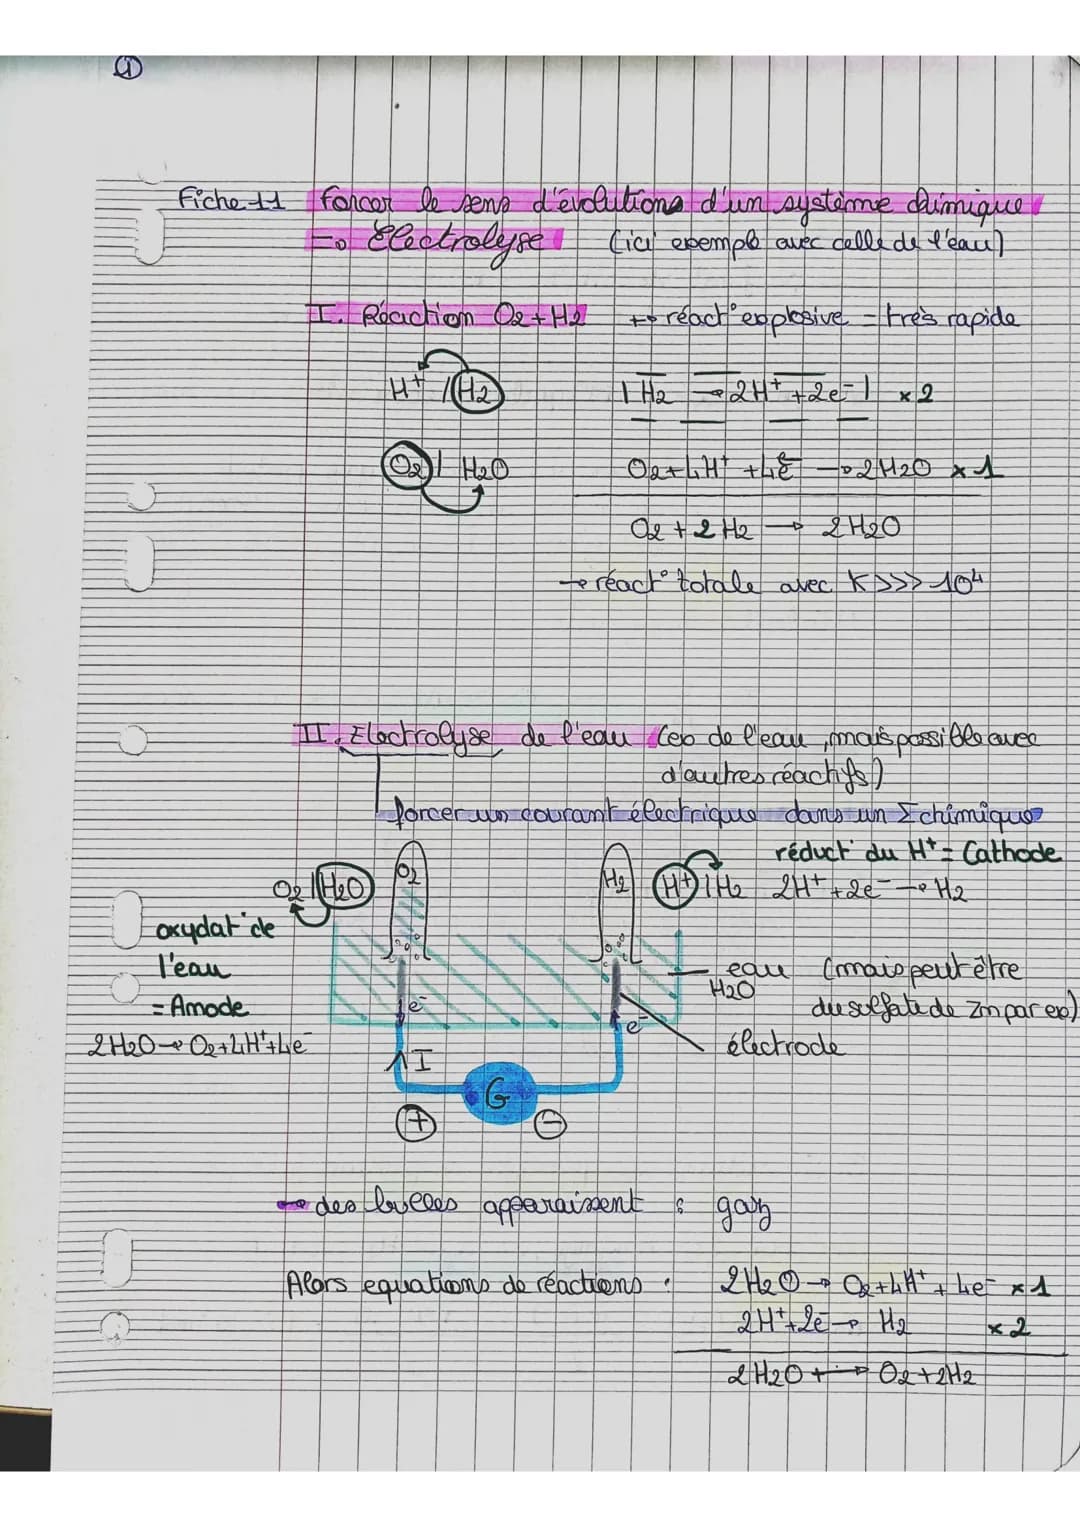 1
Fiche 11 Forcer le sens d'évolutions d'un système chimique
→ Electrolyse (ici exemple avec celle de l'eau)
I. Réaction O2+H2 → réact° explosive = très rapide
H+ / H2 | H2 → 2H+ + 2e- | x2
O2 / H2O O2+4H+ +4e- → 2H2O x1
O2 + 2H2 → 2H2O
→ réact° totale avec K >>> 10^4
II. Electrolyse de l'eau (ex de l'eau, mais possible avec
d'autres réactifs)
forcer un courant électrique dans un Σ chimique
réduct° du H+ = Cathode
O2 / H2O O2 H2 H+ / H2 2H+ + 2e- → H2
oxydat° de
l'eau
= Anode
2H2O → O2+4H++4e-
eau (mais peut être
H2O
du sulfate de Zn par ex)
électrode
e- e-
I
G
+ -
→ des bulles apparaissent : gaz
Alors equations de réactions : 2H2O → O2+4H+ + 4e- x1
2H++2e- → H2 x2
2H2O + → O2+2H2